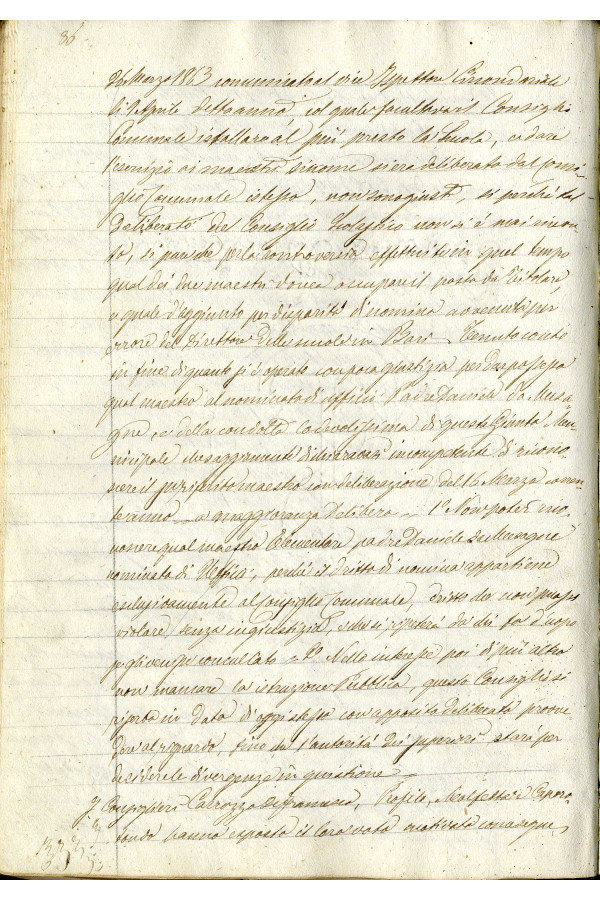 36
26 Marzo 1863 comunicata al vice Ispettore Circondariale
li 1 Aprile detto anno, col quale facoltava il Consiglio
Comunale istallare al più presto la Scuola, e dare
l'esercizio ai maestri siccome si era deliberato dal Consi-
glio Comunale istesso, non sono giusti, si perchè tal
deliberato del Consiglio Scolastico non si è mai
si pure che per la controversia in quel tempo
qual dei due maestri dovea occupare il posto da Titolare
e quale d'Aggiunto per disparità di nomina avvenuta per
errore del Direttore delle scuole in Bari - Tenuto conto
in fine di quanto si è operato con poca giustizia per
qual maestro al nominato di ufficio Padre Daniele da Mesa-
gne, e della condotta lodevolissima di questa Giunta Mu-
nicipale che saggiamente dichiaravasi incompetente di ricono-
scere il maestro con deliberazione del 16 Marzo corren-
te anno - a maggioranza Delibera - 1° Non poter rico-
noscere qual maestro Elementare padre Daniele da Mesagne
nominato di Ufficio, perchè il dritto di nomina appartiene
esclusivamente al Consiglio Comunale, dritto che non
violare senza ingiustizia,
conculcato - 2° Nello interesse poi di più altro
non mancare la istruzione Pubblica, questo Consiglio si
riporta in data di oggi stesso con apposito deliberato provve-
dere al riguardo, fino a che l'autorità dei superiori starà per
decidere le divergenze in quistione
I Consiglieri Carrozzo Profilo, Molfetta e Capo-
hanno esposto il loro voto motivato